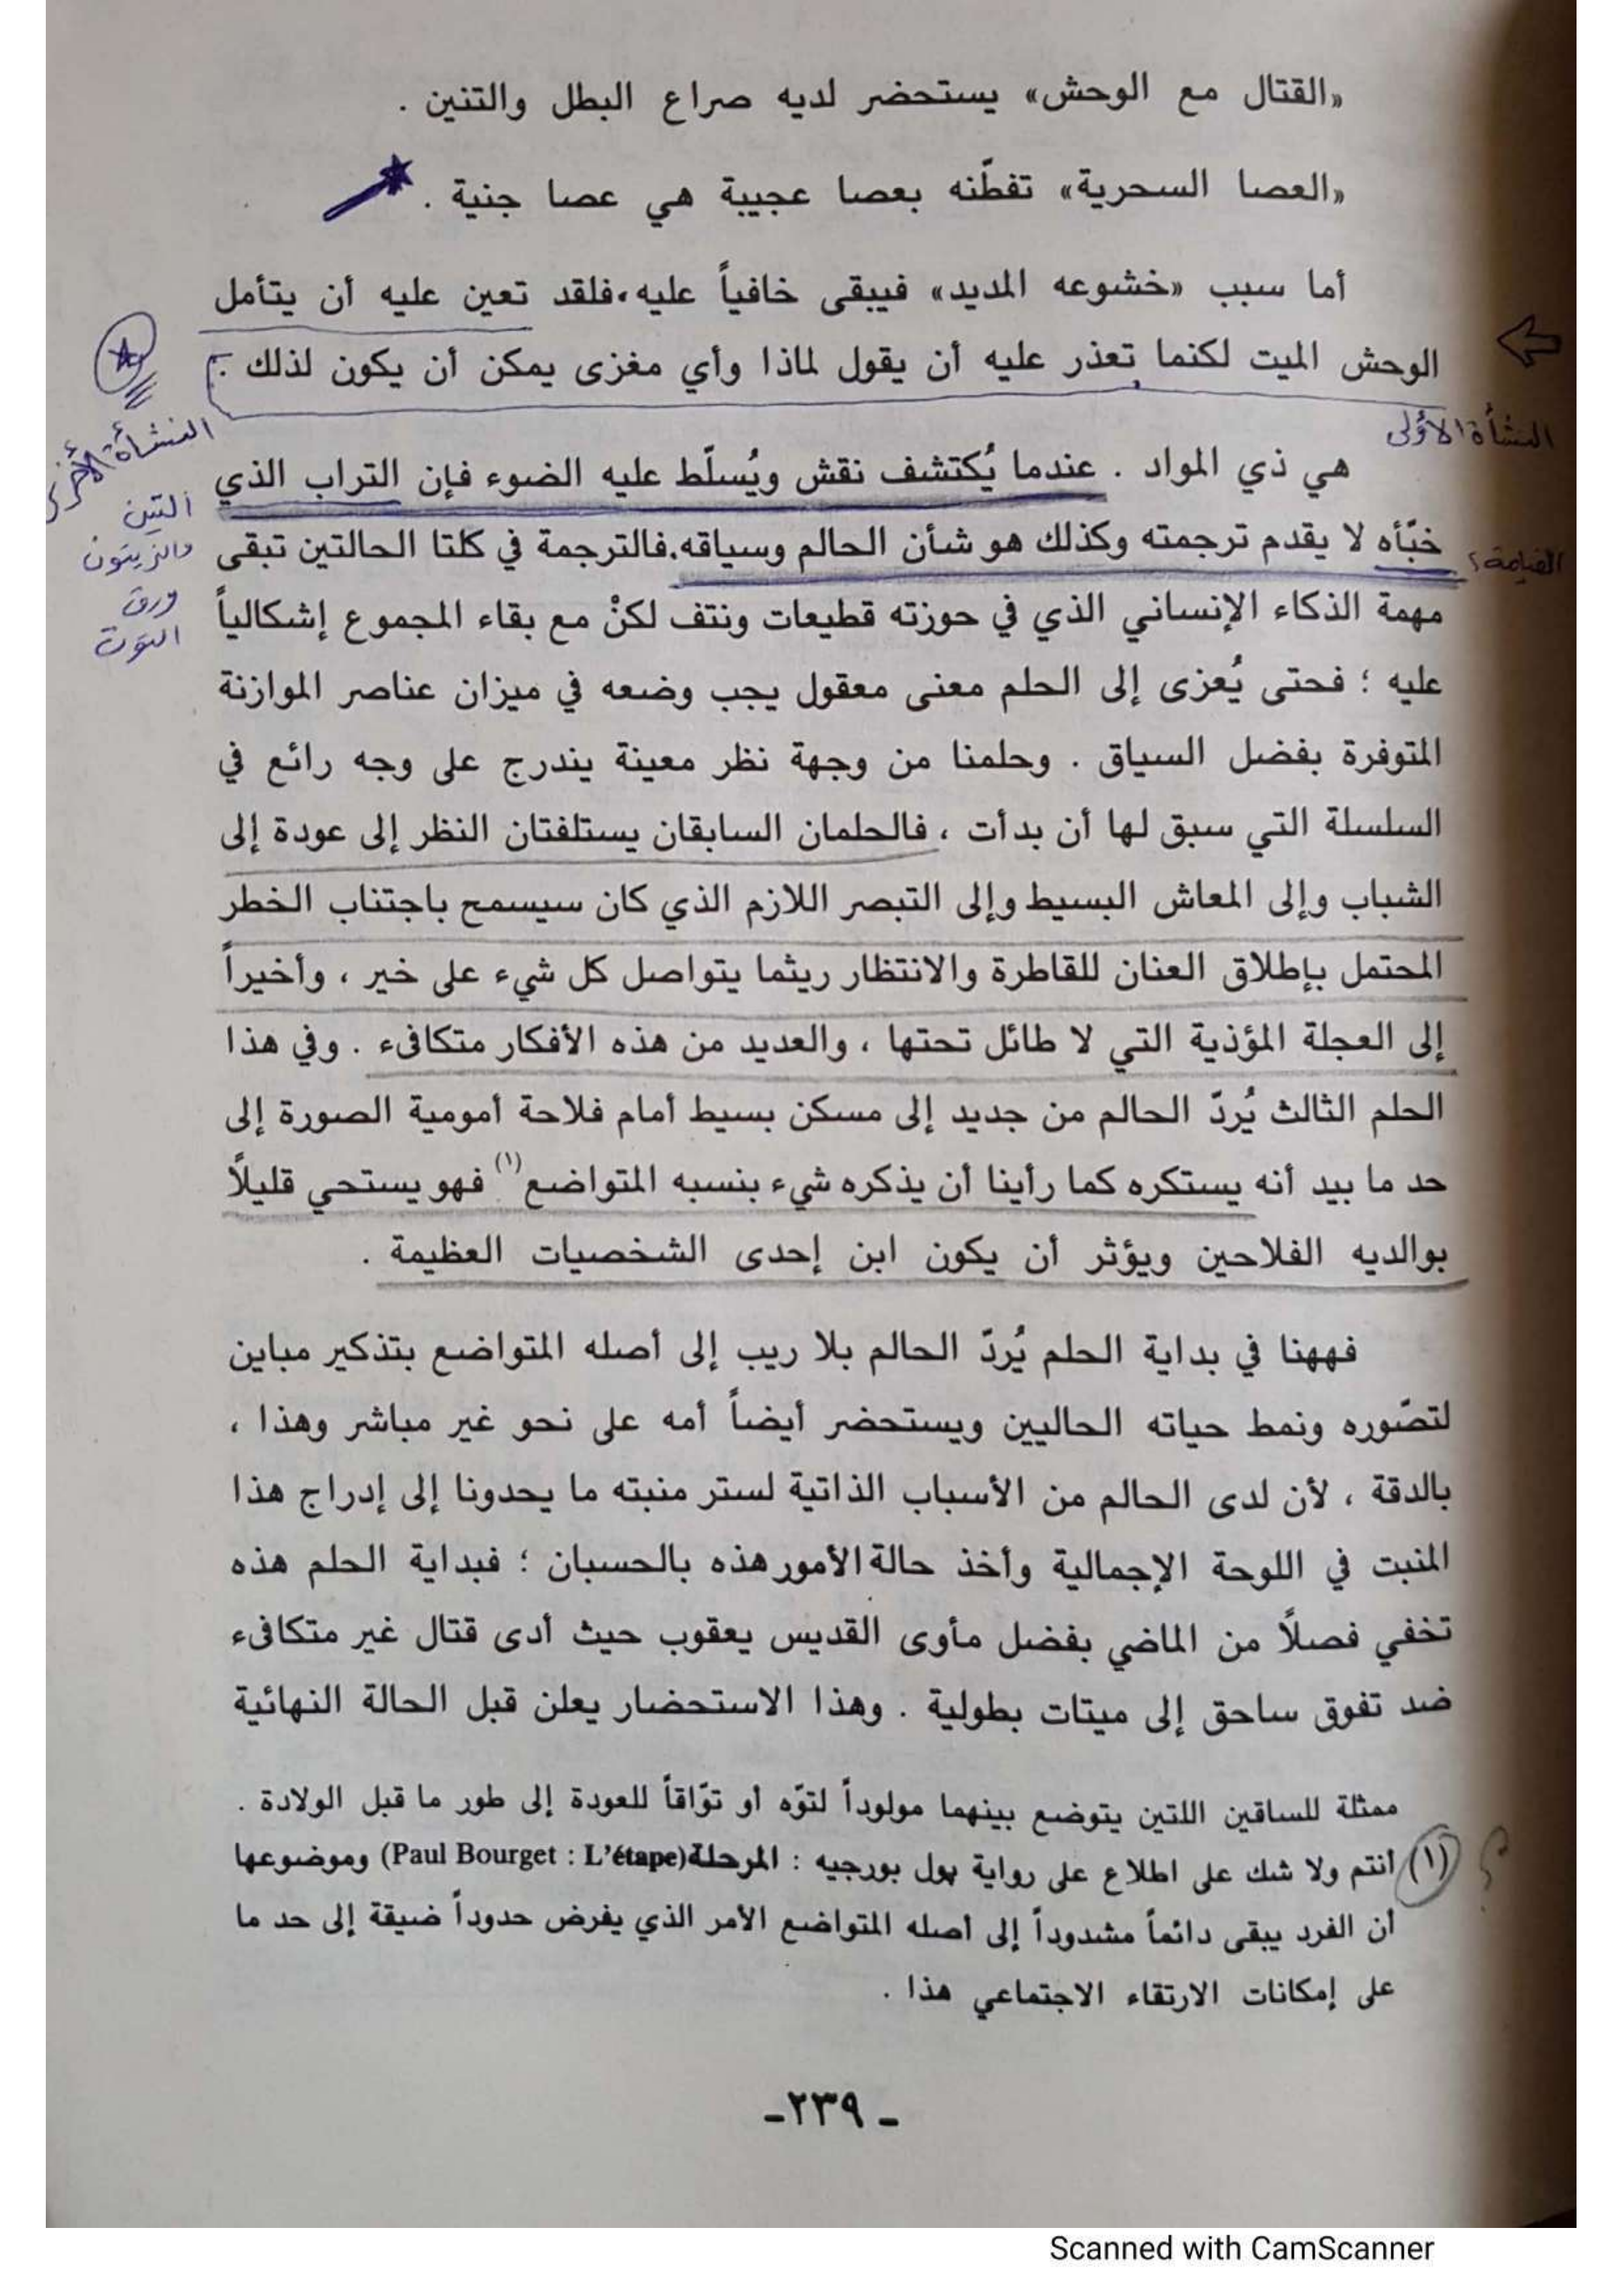 «القتال مع الوحش» يستحضر لديه صراع البطل والتنين .
«العصا السحرية» تفطّنه بعصا عجيبة هي عصا جنية .
أما سبب «خشوعه المديد» فيبقى خافياً عليه، فلقد تعين عليه أن يتأمل
الوحش الميت لكنما تعذر عليه أن يقول لماذا وأي مغزى يمكن أن يكون لذلك .
النشأة الأولى
النشأة الأخرى
هي ذي المواد . عندما يُكتشف نقش ويُسلّط عليه الضوء فإن التراب الذي
التين
والزيتون
ورق
التوت
خبّأه لا يقدم ترجمته وكذلك هو شأن الحالم وسياقه. فالترجمة في كلتا الحالتين تبقى
القيامة؟
مهمة الذكاء الإنساني الذي في حوزته قطيعات ونتف لكنْ مع بقاء المجموع إشكالياً
عليه ؛ فحتى يُعزى إلى الحلم معنى معقول يجب وضعه في ميزان عناصر الموازنة
المتوفرة بفضل السياق . وحلمنا من وجهة نظر معينة يندرج على وجه رائع في
السلسلة التي سبق لها أن بدأت ، فالحلمان السابقان يستلفتان النظر إلى عودة إلى
الشباب وإلى المعاش البسيط وإلى التبصر اللازم الذي كان سيسمح باجتناب الخطر
المحتمل بإطلاق العنان للقاطرة والانتظار ريثما يتواصل كل شيء على خير ، وأخيراً
إلى العجلة المؤذية التي لا طائل تحتها ، والعديد من هذه الأفكار متكافىء . وفي هذا
الحلم الثالث يُردّ الحالم من جديد إلى مسكن بسيط أمام فلاحة أمومية الصورة إلى
حد ما بيد أنه يستكره كما رأينا أن يذكره شيء بنسبه المتواضع(١) فهو يستحي قليلاً
بوالديه الفلاحين ويؤثر أن يكون ابن إحدى الشخصيات العظيمة .
فههنا في بداية الحلم يُردّ الحالم بلا ريب إلى أصله المتواضع بتذكير مباين
لتصّوره ونمط حياته الحاليين ويستحضر أيضاً أمه على نحو غير مباشر وهذا ،
بالدقة ، لأن لدى الحالم من الأسباب الذاتية لستر منبته ما يحدونا إلى إدراج هذا
المنبت في اللوحة الإجمالية وأخذ حالة الأمور هذه بالحسبان ؛ فبداية الحلم هذه
تخفي فصلاً من الماضي بفضل مأوى القديس يعقوب حيث أدى قتال غير متكافىء
ضد تفوق ساحق إلى ميتات بطولية . وهذا الاستحضار يعلن قبل الحالة النهائية
ممثلة للساقين اللتين يتوضع بينهما مولوداً لتوّه أو توّاقاً للعودة إلى طور ما قبل الولادة .
(١) أنتم ولا شك على اطلاع على رواية بول بورجيه : المرحلة (Paul Bourget : L'étape) وموضوعها
؟
أن الفرد يبقى دائماً مشدوداً إلى أصله المتواضع الأمر الذي يفرض حدوداً ضيقة إلى حد ما
على إمكانات الارتقاء الاجتماعي هذا .
- ٢٣٩ -
Scanned with CamScanner